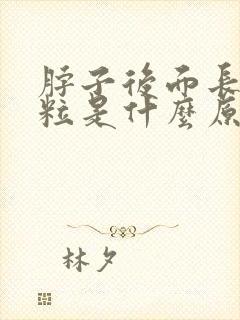 脖子後面長
粒是什麼原
林夕